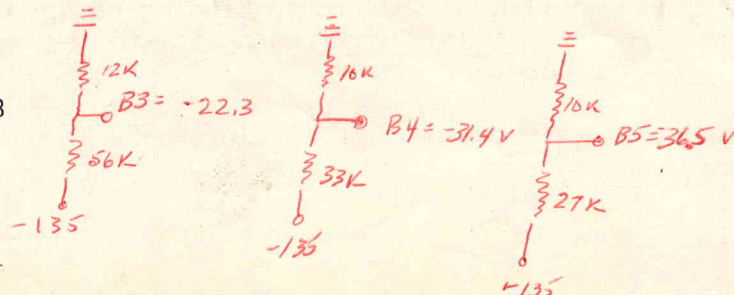 12K
B3 = -22.3
56K
-135
10K
B4 = -31.4 V
33K
-135
10K
B5 = -36.5 V
27K
-135